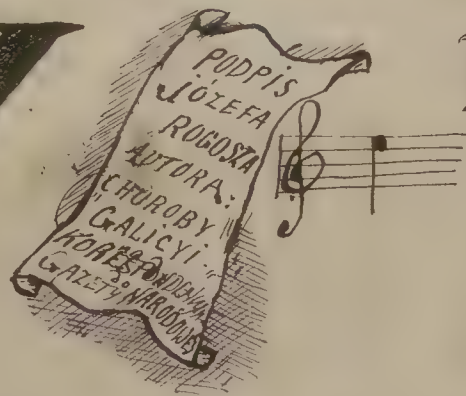 PODPIS
JÓZEFA
ROGOSZA
AUTORA:
"CHOROBY
GALICYI."
KORESPONDENTA
GAZETY NARODOWEJ